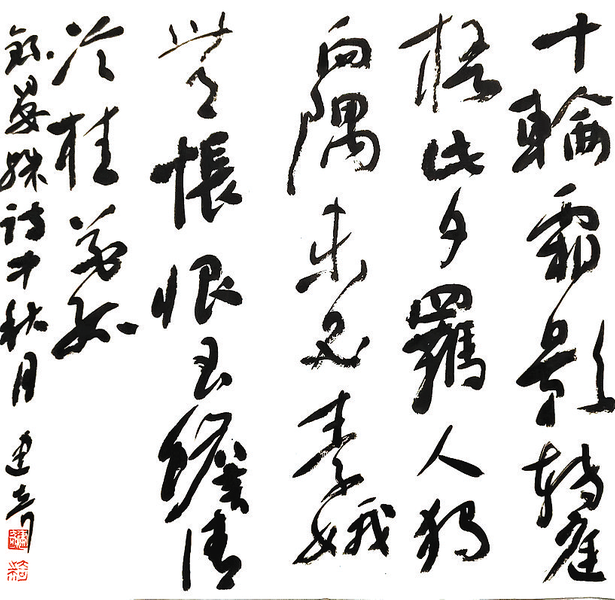 十輪霜影轉庭
梧此夕羈人獨
向隅未必素娥
無悵恨玉蟾清
冷桂花孤
錄晏殊詩中秋月